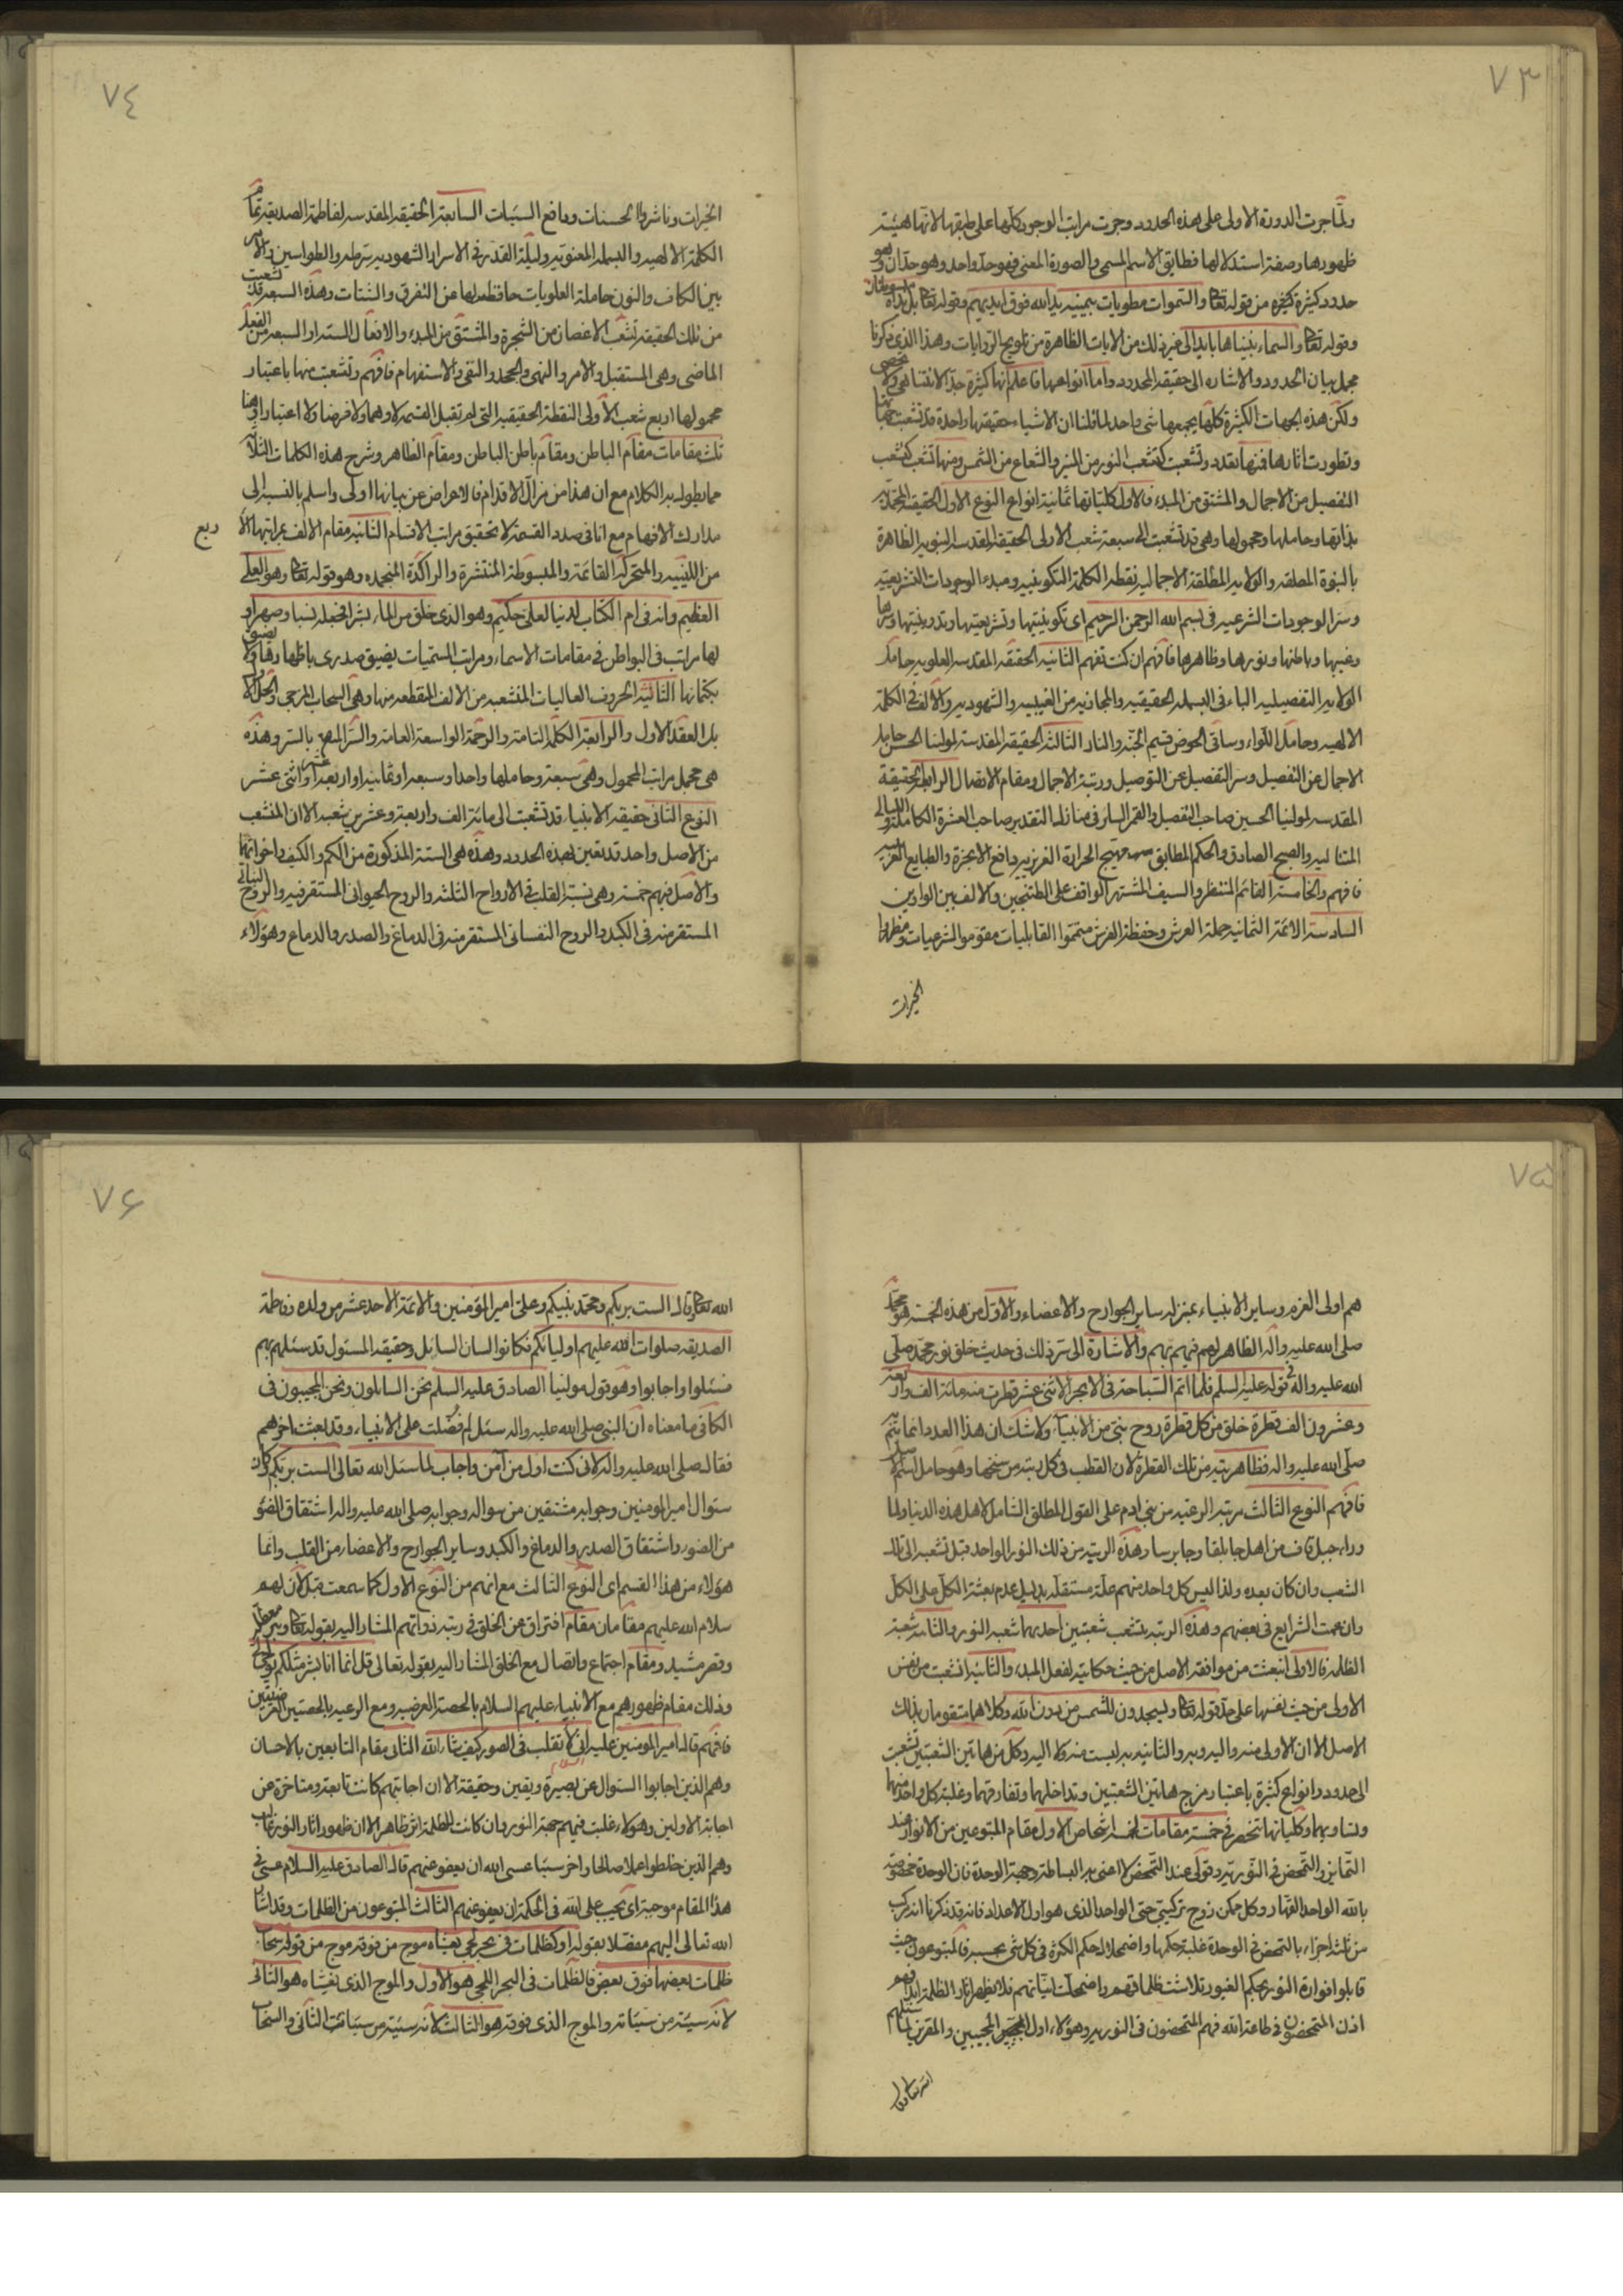 ٧٣
ولما جرت الدورة الاولى على هذه الحدود وجرت مراتب الوجود كلها على طبقها لانها هيئة
ظهورها وصفة استدلالها فطابق الاسم المسمى والصورة المعنى فهو حد واحد وهو حدان وهو
حدود كثيرة كثيرة من قوله تعالى والسموات مطويات بيمينه يد الله فوق ايديهم وقوله تعالى بل يداه مبسوطتان
وقوله تعالى والسماء بنيناها بايد الى غير ذلك من الايات الظاهرة من تلويح الروايات وهذا الذي ذكرنا
مجمل بيان الحدود والاشارة الى حقيقة المحدود واما انواعها فاعلم انها كثيرة جدا لا تتناهى ولا تحصى
ولكن هذه الجهات الكثيرة كلها يجمعها شئ واحد لما قلنا ان الاشياء حقيقتها واحدة قد تشعبت جهاتها
وتطورت اثارها فمنها تعدد وتشعبت كتشعب النور من المنير والشعاع من الشمس ومنها تشعب كتشعب
التفصيل من الاجمال والمشتق من المبدء فالاول كلياتها ثمانية انواع النوع الاول الحقيقة المحمدية
بذاتها وحاملها ومحمولها وهي قد تشعبت الى سبعة شعب الاولى الحقيقة المقدسة النبوية الظاهرة
بالنبوة المطلقة والولاية المطلقة الاجمالية نقطة الكلمة التكوينية ومبدء الوجودات التشريعية
وسر الوجودات الشرعية في بسم الله الرحمن الرحيم اي تكوينيتها وتشريعيتها وتدوينيتها وسرها
وغيبها وباطنها ونورها وظاهرها فافهم ان كنت تفهم الثانية الحقيقة المقدسة العلوية حامل
الولاية التفصيلية الباء في البسملة الحقيقية والمجازية من الغيبية والشهودية والالف في الكلمة
الالهية وحامل اللواء وساقي الحوض قسيم الجنة والنار الثالثة الحقيقة المقدسة لمولينا الحسن حايل
الاجمال عن التفصيل وسر التفصيل عن التوصيل ورتبة الاجمال ومقام الاتصال الرابعة الحقيقة
المقدسة لمولينا الحسين صاحب التفصيل والقمر الساير في منازل التقدير صاحب العشرة الكاملة والليالي
المتتالية والصبح الصادق والحكم المطابق مهيج الحرارة الغريزية دافع الابخرة والطبايع الغريبة
فافهم والخامسة القائم المنتظر والسيف المشتهر الواقف على الطتنجين والالف بين الواوين
السادسة الائمة الثمانية حملة العرش وحفظة الفرش متمموا القابليات مقوموا الشرعيات ومظهروا
الخيرات
٧٤
الخيرات وناشروا الحسنات ودافع السيئات السابعة الحقيقة المقدسة لفاطمة الصديقة تمام
الكلمة الالهية والبسملة المعنوية وليلة القدر في الاسرار الشهودية سر طه والطواسين والامر
بين الكاف والنون حاملة العلويات حافظة لها عن التفرق والشتات وهذه السبعة قد تشعبت
من تلك الحقيقة تشعب الاغصان من الشجرة والمشتق من المبدء والافعال الستة او السبعة من الفعل
الماضي وهي المستقبل والامر والنهي والجحد والنفي والاستفهام فافهم وتشعبت منها باعتبار
محمولها اربع شعب الاولى النقطة الحقيقية التي لم تقبل القسمة لا وهما ولا فرضا ولا اعتبارا وهنا
ثلث مقامات مقام الباطن ومقام باطن الباطن ومقام الظاهر وشرح هذه الكلمات الثلاث
مما يطول به الكلام مع ان هذا من مزال الاقدام فالاعراض عن بيانها اولى واسلم بالنسبة الى
مدارك الافهام مع انا في صدد القسمة لا تحقيق مراتب الاقسام الثانية مقام الالف بمراتبها الاربع
من اللينية والمتحركة القائمة والمبسوطة المنتشرة والراكدة المنجمدة وهو قوله تعالى وهو العلي
العظيم وانه في ام الكتاب لدينا لعلي حكيم وهو الذي خلق من الماء بشرا فجعله نسبا وصهرا و
لها مراتب في البواطن في مقامات الاسماء ومراتب المسميات يضيق صدري باظهارها ولا يضيق
بكتمانها الثالثة الحروف العاليات المنشعبة من الالف المقطعة منها وهي السحاب المزجي والحلل
بل العقد الاول والرابعة الكلمة التامة والرحمة الواسعة العامة والسر المقنع بالسر وهذه
هي مجمل مراتب المحمول وهي سبعة وحاملها واحد او سبعة او ثمانية او اربعة عشر او اثني عشر
النوع الثاني حقيقة الانبياء قد تشعبت الى مائة الف واربعة وعشرين شعبة الا ان المنشعب
من الاصل واحد قد تعين بهذه الحدود وهذه هي الستة المذكورة من الكم والكيف واخواتهما
والاصل فيهم خمسة وهي نسبة القلب في الارواح الثلثة والروح الحيواني المستقر فيه والروح النباتي
المستقر منه في الكبد والروح النفساني المستقر منه في الدماغ والصدر والدماع وهؤلاء
٧٥
هم اولى العزم وساير الانبياء بمنزلة ساير الجوارح والاعضاء والاول من هذه الخمسة هو محمد
صلى الله عليه واله الظاهر لهم فيهم بهم والاشارة الى سر ذلك في حديث خلق نور محمد صلى
الله عليه واله في قوله عليه السلم فلما اتم السباحة في الابحر الاثنى عشر قطرت منه مائة الف واربعة
وعشرون الف قطرة خلق من كل قطرة روح نبي من الانبياء ولا شك ان هذا العدد انما يتم به
صلى الله عليه واله فظاهريته من تلك القطرة لان القطب في كل رتبة من سنخها وهو حامل لسره
فافهم النوع الثالث مرتبة الرعية من بني ادم على القول المطلق الشامل لاهل هذه الدنيا ولما
وراء جبل قاف من اهل جابلقا وجابرسا وهذه الرتبة من ذلك النور الواحد قبل تشعبه الى تلك
الشعب وان كان بعده ولذا ليس كل واحد منهم علة مستقلة بدليل عدم بعثة الكل على الكل
وان عمت الشرايع في بعضهم وهذه الرتبة يتشعب شعبتين احديهما شعبة النور والثانية شعبة
الظلمة فالاولى انبعثت من موافقة الاصل من حيث حكايته لفعل المبدء والثانية انشعبت من نفس
الاولى من حيث نفسها على حد قوله تعالى ويسجدون للشمس من دون الله وكلاهما متقومان بذلك
الاصل الا ان الاولى منه واليه وبه والثانية به ليست منه ولا اليه وكل من هاتين الشعبتين تشعبت
الى حدود وانواع كثيرة باعتبار مزج هاتين الشعبتين وتداخلهما وتفارقهما وغلبة كل واحد منهما
وتساويهما وكلياتها تنحصر في خمسة مقامات لخمسة اشخاص الاول مقام المتبوعين من الانوار عند
التمايز والتمحض في النورية وقولي عند التمحض لا اعني به البساطة وجهة الوحدة فان الوحدة مخصوصة
بالله الواحد القهار وكل ممكن زوج تركيبي حتى الواحد الذي هو اول الاعداد فانه قد ذكرنا انه مركب
من ثلثة اجزاء بالتمحض في الوحدة غلبة حكمها واضمحلال حكم الكثرة في كل شئ بحسبه فالمتبوعون حيث
قابلوا فوارة النور بحكم الغيور تلاشت ظلماتهم واضمحلت انياتهم فلا يظهر اثار الظلمة ابدا فهم
اذن المتمحضون في طاعة الله فهم المتمحضون في النورية وهؤلاء اول المجيبين والمقرين لما سئلهم
الله تعالى وقال
٧۶
الله تعالى وقال الست بربكم ومحمد نبيكم وعلي امير المؤمنين والائمة الاحد عشر من ولده وفاطمة
الصديقة صلوات الله عليهم اوليائكم فكانوا لسان السائل وحقيقة المسئول قد سئلهم بهم
فسئلوا واجابوا وهو قول مولينا الصادق عليه السلم نحن السائلون ونحن المجيبون في
الكافي ما معناه ان النبي صلى الله عليه واله سئل بم فضلت على الانبياء وقد بعثت اخرهم
فقال صلى الله عليه واله لاني كنت اول من آمن واجاب لما سئل الله تعالى الست بربكم وكان
سئوال امير المومنين وجوابه مشتقين من سواله وجوابه صلى الله عليه واله اشتقاق الضوء
من الضوء واشتقاق الصدر والدماغ والكبد وساير الجوارح والاعضاء من القلب وانما
هؤلاء من هذا القسم اي النوع الثالث مع انهم من النوع الاول كما سمعت قبل لان لهم
سلام الله عليهم مقامان مقام افتراق عن الخلق في رتبة ذواتهم المشار اليه بقوله تعالى وبئر معطلة
وقصر مشيد ومقام اجتماع واتصال مع الخلق المشار اليه بقوله تعالى قل انما انا بشر مثلكم يوحى الي
وذلك مقام ظهورهم مع الانبياء عليهم السلام بالحصة العرضية ومع الرعية بالحصتين العرضيتين
فافهم قال امير المومنين عليه السلام اني لاتقلب في الصور كيف شاء الله الثاني مقام التابعين بالاحسان
وهم الذين اجابوا السئوال عن بصيرة ويقين وحقيقة الا ان اجابتهم كانت تابعة ومتاخرة عن
اجابة الاولين وهؤلاء غلبت فيهم جهة النور وان كانت للظلمة اثر ظاهر الا ان ظهور اثار النور غالب
وهم الذين خلطوا عملا صالحا واخر سيئا عسى الله ان يعفو عنهم قال الصادق عليه السلام عسى في
هذا المقام موجبة اي يجب على الله في الحكمة ان يعفو عنهم الثالث المتبوعون من الظلمات وقد اشار
الله تعالى اليهم مفصلا بقوله او كظلمات في بحر لجي يغشاه موج من فوقه موج من فوقه سحاب
ظلمات بعضها فوق بعض فالظلمات في البحر اللجي هو الاول والموج الذي يغشاه هو الثاني
لانه سيئة من سيئاته والموج الذي فوقه هو الثالث لانه سيئة من سيئات الثاني والسحاب